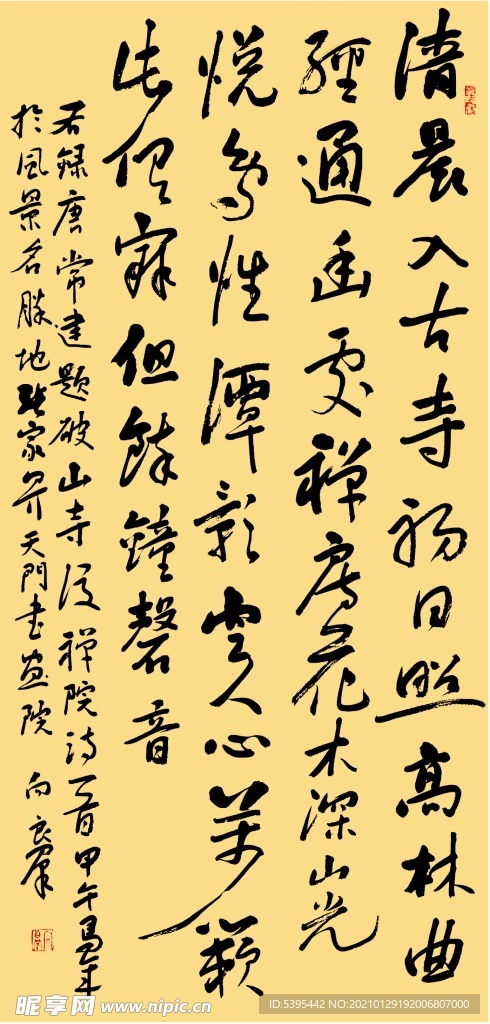 清晨入古寺初日照高林曲
經通幽處禅房花木深山光
悦鸟性潭影空人心萬籟
此俱寂但餘鐘磬音
右録唐常建題破山寺後禅院诗一首甲午馬年
於風景名勝地張家界天門書画院 向
昵享网 www.nipic.cn
ID:5395442 NO:20210129192006807000